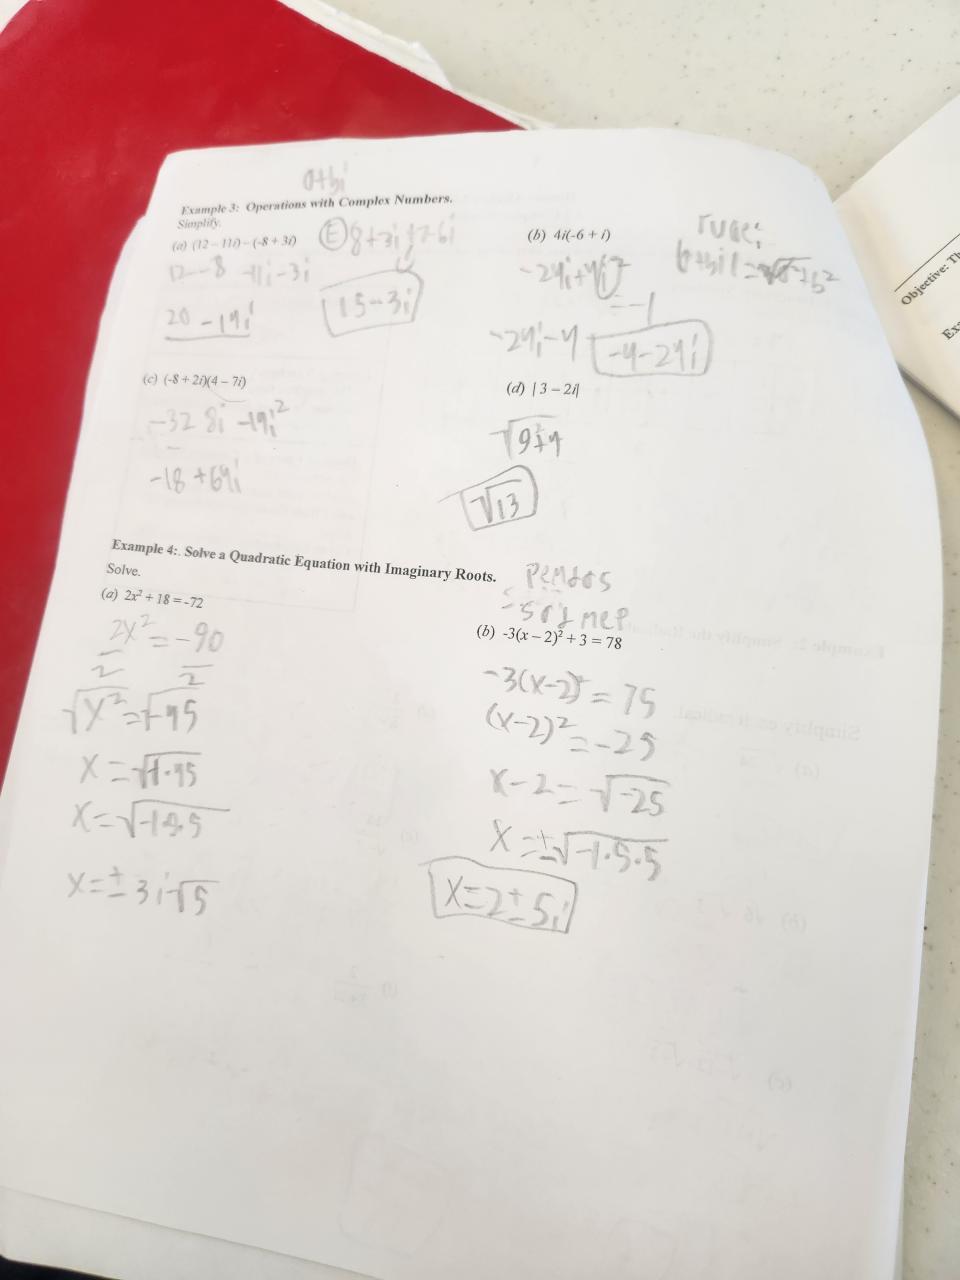 a+bi
Example 3: Operations with Complex Numbers.
Simplify.
(a) (12 – 11i) – (-8 + 3i)
12--8 -11i-3i
20 -14i
(E) 8+3i+7-6i
15-3i
(b) 4i(-6 + i)
-24i+4i²
=-1
-24i-4
-4-24i
rule:
√a²+b²
(c) (-8 + 2i)(4 – 7i)
-32 8i -14i²
-18 +64i
(d) | 3 – 2i|
√9+4
√13
Example 4:. Solve a Quadratic Equation with Imaginary Roots.
Solve.
(a) 2x² + 18 = -72
2x² = -90
2 2
√x²=√-45
x=√-1·45
x=
x=±3i√5
(b) -3(x – 2)² + 3 = 78
-3(x-2)² = 75
(x-2)²=-25
x-2=√-25
x=±√-1·5·5
x=2±5i
Objective: Th
Exa